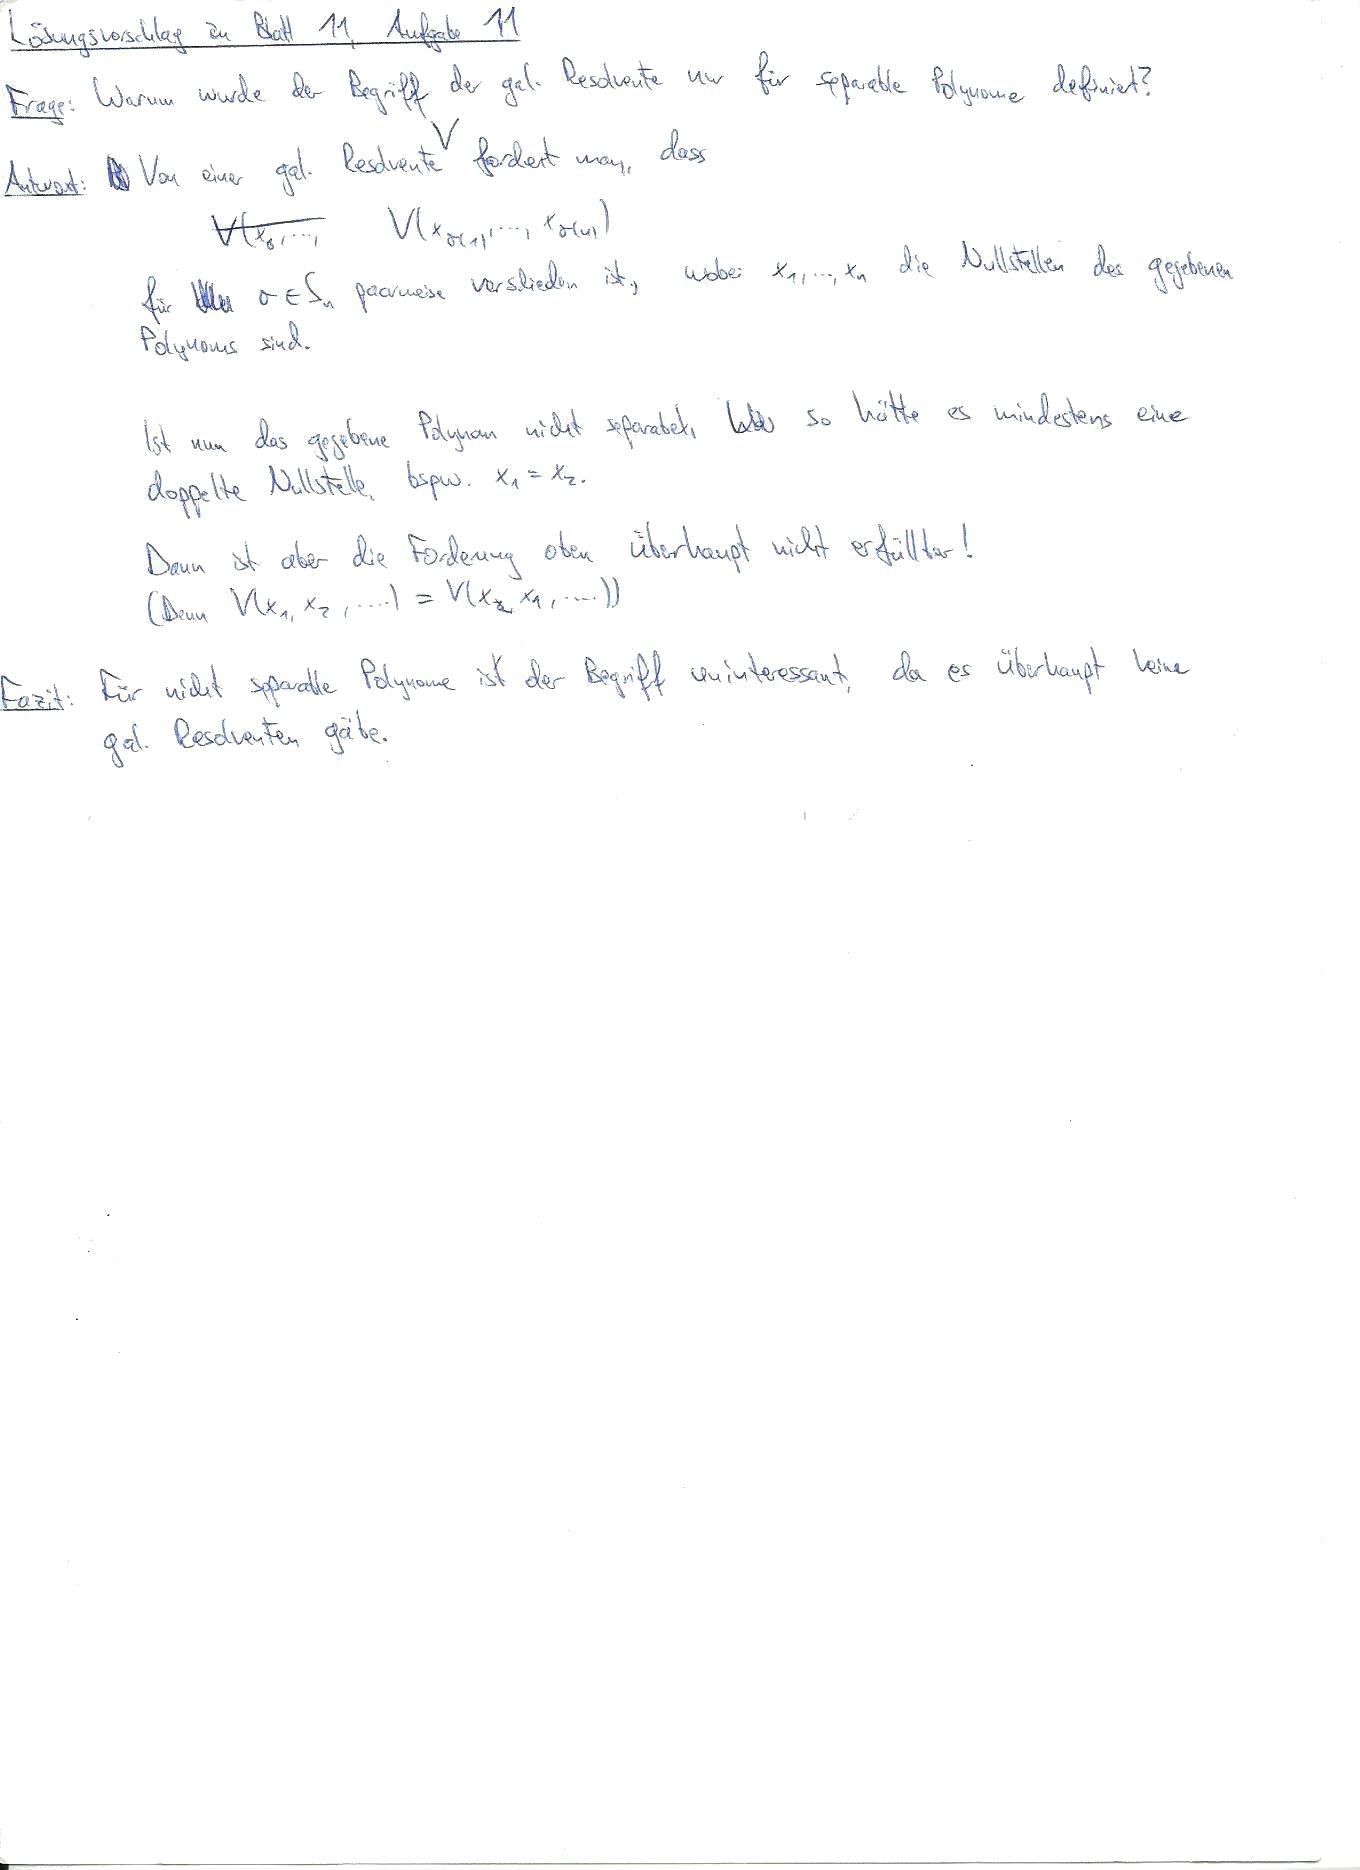 Lösungsvorschlag zu Blatt 11, Aufgabe 11
Frage: Warum wurde der Begriff der gal. Resolvente nur für separable Polynome definiert?
Antwort: Von einer gal. Resolvente V fordert man, dass
V(x_σ, ..., V(x_σ(1), ..., x_σ(n))
für σ ∈ S_n paarweise verslieden ist, wobei x_1, ..., x_n die Nullstellen des gegebenen
Polynoms sind.
Ist nun das gegebene Polynom nicht separabel, so hätte es mindestens eine
doppelte Nullstelle, bspw. x_1 = x_2.
Dann ist aber die Forderung oben überhaupt nicht erfüllbar!
(Denn V(x_1, x_2, ....) = V(x_2, x_1, ....))
Fazit: Für nicht separable Polynome ist der Begriff uninteressant, da es überhaupt keine
gal. Resolventen gäbe.